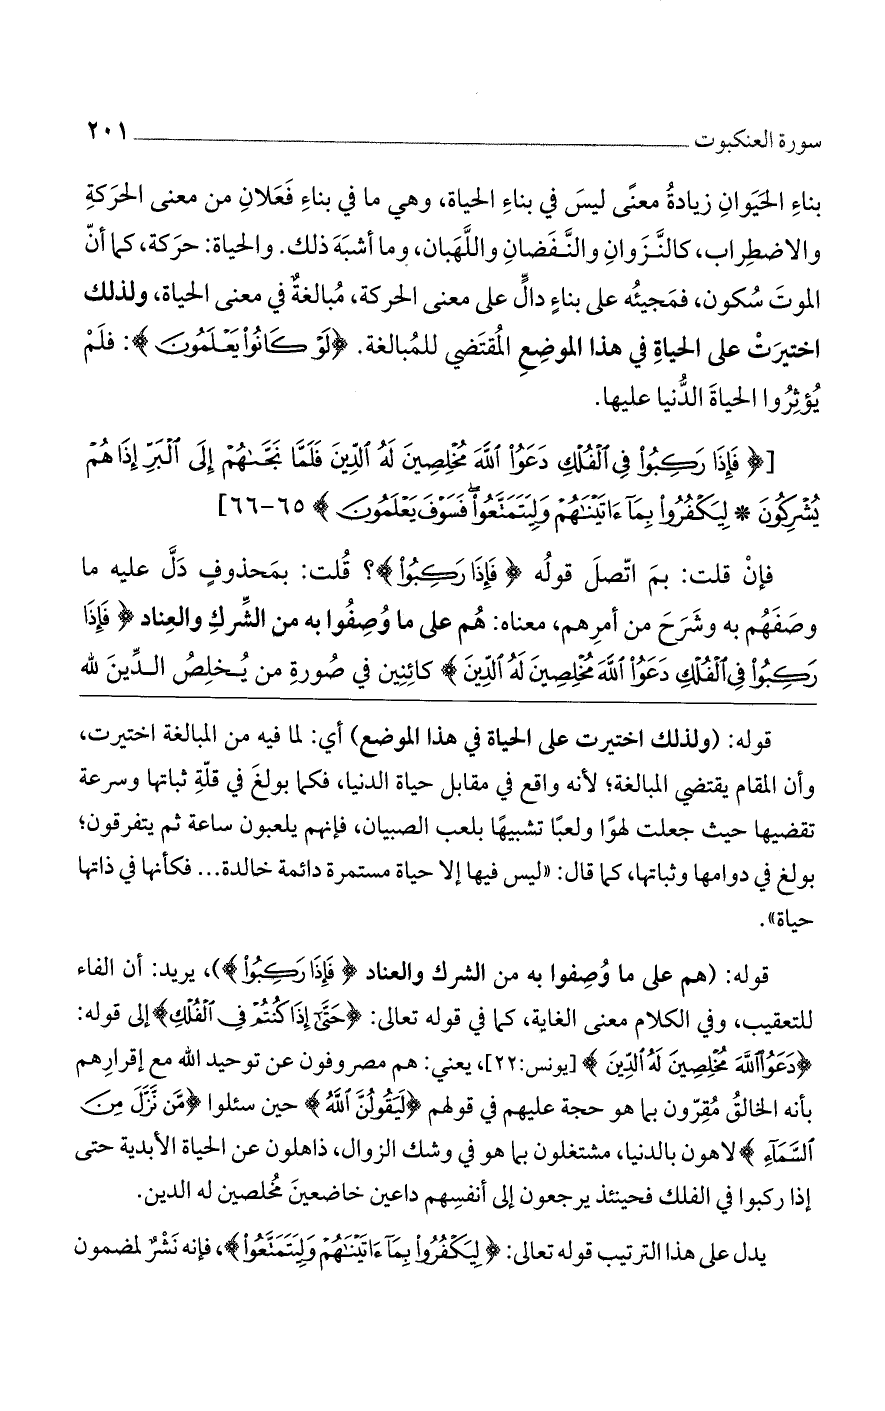 سورة العنكبوت ٢٠١
بناءِ الحَيَوانِ زيادةُ معنًى ليسَ في بناءِ الحياة، وهي ما في بناءِ فَعَلان من معنى الحرَكةِ
والاضطِراب، كالنَّزَوانِ والنَّفَضانِ واللَّهَبان، وما أشبَهَ ذلك. والحياة: حرَكة، كما أنّ
الموتَ سُكون، فمَجيئُه على بناءٍ دالٍّ على معنى الحركة، مُبالغةٌ في معنى الحياة، ولذلك
اختيرَتْ على الحياةِ في هذا الموضِعِ المُقتَضي للمُبالغة. ﴿لَوْ كَانُوا۟ يَعْلَمُونَ﴾: فلَمْ
يُؤثِرُوا الحياةَ الدُّنيا عليها.
[﴿فَإِذَا رَكِبُوا۟ فِى ٱلْفُلْكِ دَعَوُا۟ ٱللَّهَ مُخْلِصِينَ لَهُ ٱلدِّينَ فَلَمَّا نَجَّىٰهُمْ إِلَى ٱلْبَرِّ إِذَا هُمْ
يُشْرِكُونَ * لِيَكْفُرُوا۟ بِمَآ ءَاتَيْنَٰهُمْ وَلِيَتَمَتَّعُوا۟ ۖ فَسَوْفَ يَعْلَمُونَ﴾ ٦٥-٦٦]
فإنْ قلت: بمَ اتّصلَ قولُه ﴿فَإِذَا رَكِبُوا۟﴾؟ قُلت: بمَحذوفٍ دَلَّ عليه ما
وصَفَهُم به وشَرَحَ من أمرِهم، معناه: هُم على ما وُصِفُوا به من الشِّركِ والعِناد ﴿فَإِذَا
رَكِبُوا۟ فِى ٱلْفُلْكِ دَعَوُا۟ ٱللَّهَ مُخْلِصِينَ لَهُ ٱلدِّينَ﴾ كائِنِين في صُورةِ من يُـخلِصُ الـدِّينَ لله
قوله: (ولذلك اختيرت على الحياة في هذا الموضع) أي: لما فيه من المبالغة اختيرت،
وأن المقام يقتضي المبالغة؛ لأنه واقع في مقابل حياة الدنيا، فكما بولغَ في قلّةِ ثباتها وسرعة
تقضيها حيث جعلت لهوًا ولعبًا تشبيهًا بلعب الصبيان، فإنهم يلعبون ساعة ثم يتفرقون؛
بولغ في دوامها وثباتها، كما قال: «ليس فيها إلا حياة مستمرة دائمة خالدة... فكأنها في ذاتها
حياة».
قوله: (هم على ما وُصِفوا به من الشرك والعناد ﴿فَإِذَا رَكِبُوا۟﴾)، يريد: أن الفاء
للتعقيب، وفي الكلام معنى الغاية، كما في قوله تعالى: ﴿حَتَّىٰٓ إِذَا كُنتُمْ فِى ٱلْفُلْكِ﴾ إلى قوله:
﴿دَعَوُا۟ ٱللَّهَ مُخْلِصِينَ لَهُ ٱلدِّينَ﴾ [يونس:٢٢]، يعني: هم مصروفون عن توحيد الله مع إقرارِهم
بأنه الخالقُ مُقِرّون بما هو حجة عليهم في قولهم ﴿لَيَقُولُنَّ ٱللَّهُ﴾ حين سئلوا ﴿مَّن نَّزَّلَ مِنَ
ٱلسَّمَآءِ﴾ لاهون بالدنيا، مشتغلون بما هو في وشك الزوال، ذاهلون عن الحياة الأبدية حتى
إذا ركبوا في الفلك فحينئذ يرجعون إلى أنفسِهم داعين خاضعينَ مُخلصين له الدين.
يدل على هذا الترتيب قوله تعالى: ﴿لِيَكْفُرُوا۟ بِمَآ ءَاتَيْنَٰهُمْ وَلِيَتَمَتَّعُوا۟﴾، فإنه نَشْرٌ لمضمون